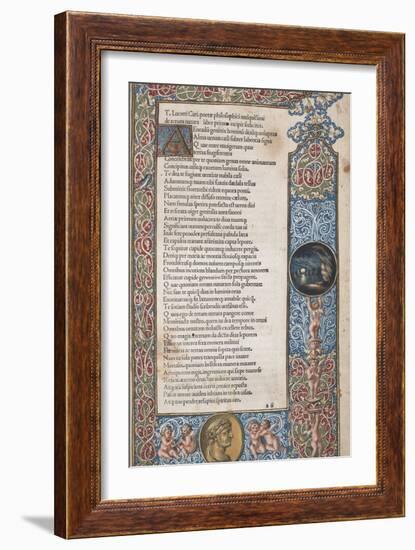 T. Lucreti Cari poetæ philosophici antiquissimi
de rerum natura liber primus incipit foelicit̃.
AEneadũ genitrix hominũ diuũq; uoluptas
Alma uenus: cæli subter labentia signa
Quæ mare nauigerum quæ
terras frugiferentis
Concelebras per te quoniam genus omne animantum
Concipitur
Te dea te fugiunt uenti: te nubila cæli
Aduentumq; tuum: tibi suauis dædala tellus
Submittit flores: tibi rident æquora ponti
Placatumq; nitet diffuso numine cælum.
Nam simulac species patefacta est uerni diei
Et reserata uiget genitalis aura fauoni
Aeriæ primum uolucres te diua tuum
Significant initum percussæ corda tua ui
Inde feræ pecudes persultant pabula læta
Et rapidos tranant amnis: ita capta lepore
Te sequitur cupide quocunq; inducere pergis.
Deniq; per maria ac montis fluuiosq; rapacis
Frondiferasq; domos auium camposq; uirentis
Omnibus incutiens blandum per pectora amorem
Efficis ut cupide generatim sæcla propagent.
Quæ quoniam rerum naturam sola gubernas
Nec sine te quicq̃ dias in luminis oras
Exoritur: neq; fit lætum neq; amabile quicq̃.
Te sociam studio scribendis uersibus esse
Quos ego de rerum natura pangere conor
Memmiadæ nostro: quem tu dea tempore in omni
Omnibus ornatum uoluisti excellere rebus.
Quo magis æternum da dictis diua leporem
Effice ut interea fera monera militiai
Per maria ac terras omnis sopita quiescant.
Nam tu sola potes tranquilla pace iuuare
Mortalis: quoniam belli fera monera mauors
Armipotens regit: ingremium qui sæpe tuum se
Reiicit æterno deuictus uulnere amoris.
Atq; ita suspiciens tereti ceruice reposta
Pascit amore auidos inhians in te dea uisus
Atq; tuo pendet resupini spiritus ore.